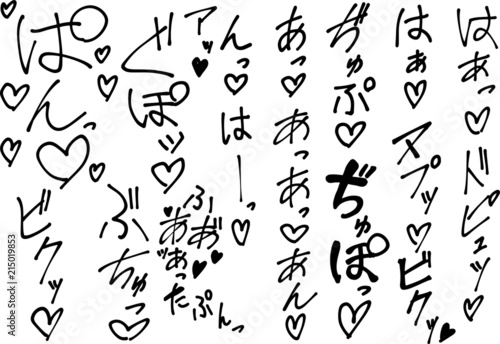 はぁっ♡ドピュッ♡
はぁ♡
アプッ♡ビクッ♡
ぢゅぷ♡
ぢゅぽっ♡
あっ♡あっあっ♡あん♡
んっ♡はーっ♡
アッ♥
どぽッ♡
ぱんっ♡
ビクッ♡
ぶちゅっ♡
たぷんっ
Adobe Stock
Adobe Stock | #215019853